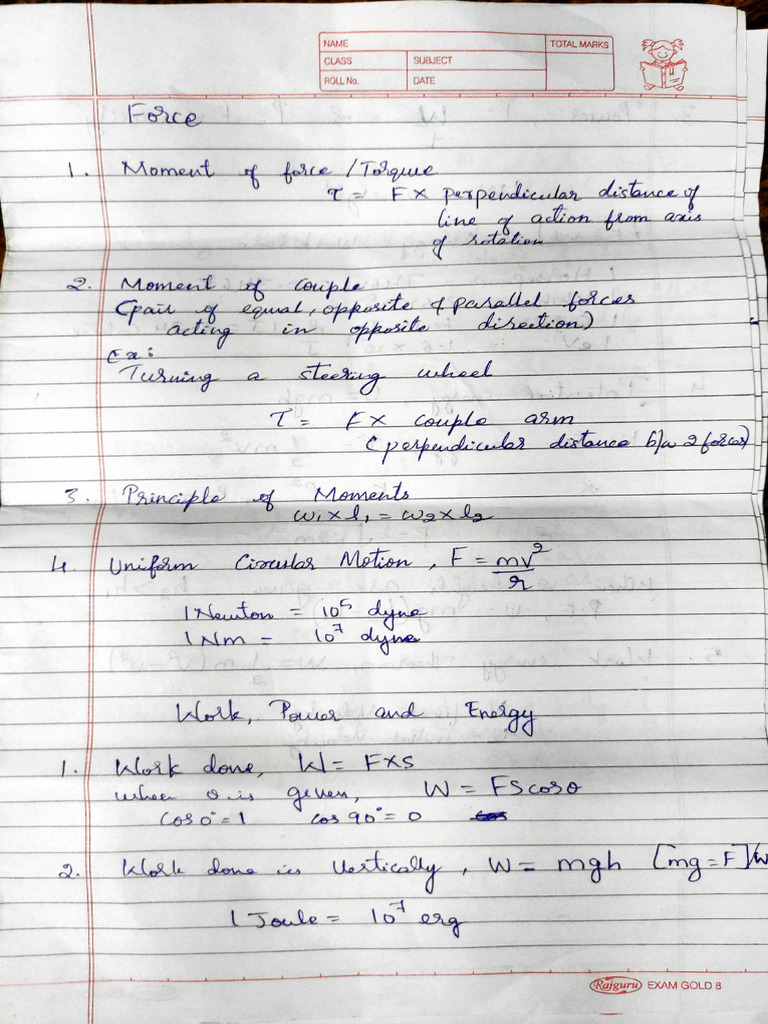 NAME
TOTAL MARKS
CLASS
SUBJECT
ROLL No.
DATE
Force
1. Moment of force / Torque
τ = F × perpendicular distance of
line of action from axis
of rotation
2. Moment of couple
(pair of equal, opposite & parallel forces
acting in opposite direction)
Ex:
Turning a steering wheel
τ = F × couple arm
(perpendicular distance b/w 2 forces)
3. Principle of Moments
w₁ × l₁ = w₂ × l₂
4. Uniform Circular Motion, F = mv²/r
1 Newton = 10⁵ dyne
1 Nm = 10⁷ dyne
Work, Power and Energy
1. Work done, W = F×S
when θ is given, W = FS cosθ
cos 0° = 1 cos 90° = 0 cos
2. Work done is Vertically, W = mgh [mg = F]
1 Joule = 10⁷ erg
Rajguru EXAM GOLD 8